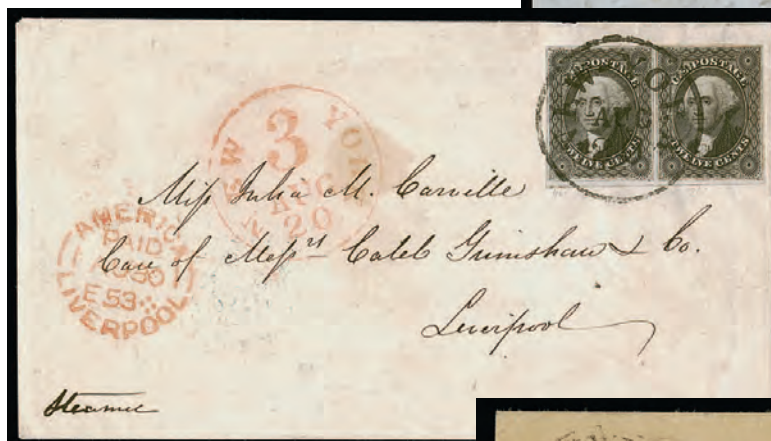 U.S. POSTAGE
TWELVE CENTS
U.S. POSTAGE
TWELVE CENTS
NEW YORK
3
AUG
20
AMERICA
PAID
LIVERPOOL
E 53
Miss Julia M. Carville
Care of Messrs Caleb Grimshaw & Co.
Liverpool
Steamer